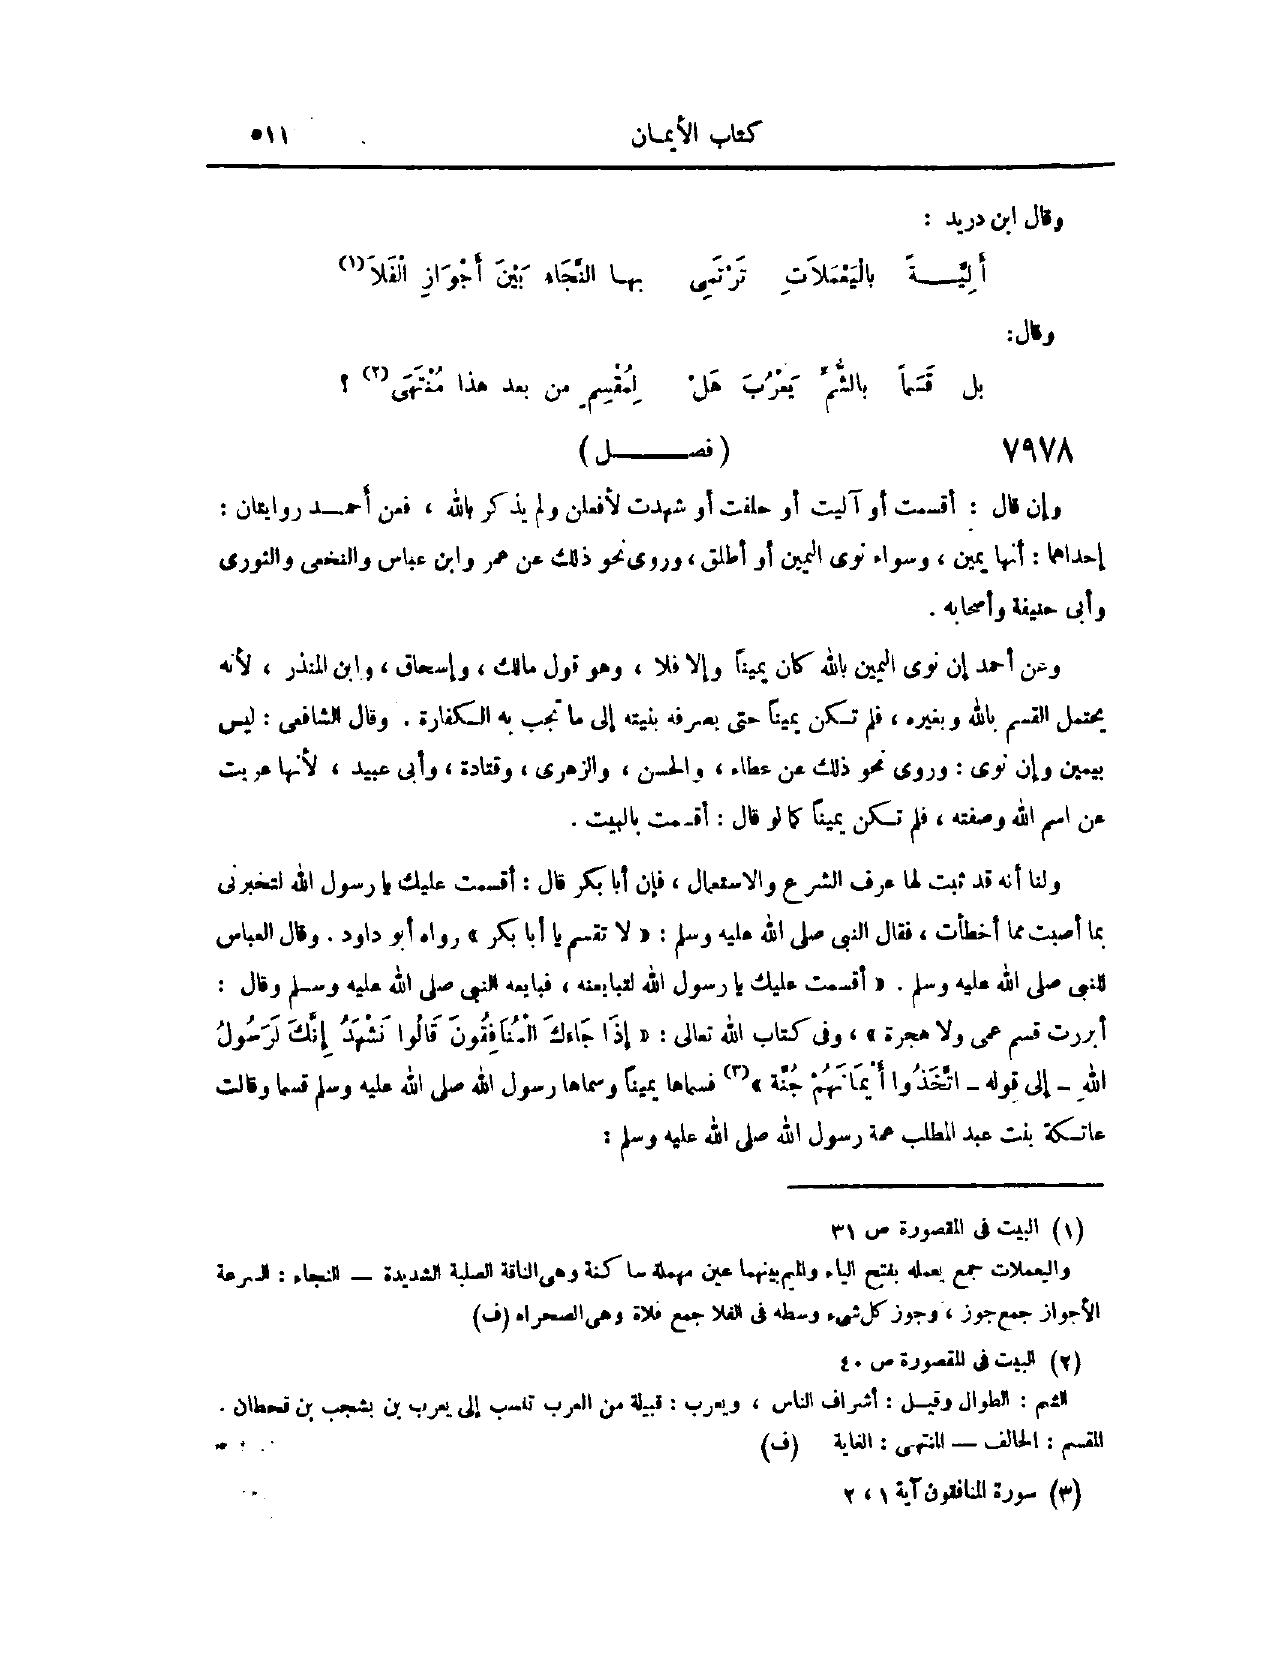 كتاب الأيمان ٥١١
وقال ابن دريد :
أَلِيَّــــةً بِالْيَعْمَلَاتِ تَرْتَمِى بها النَّجَاه بَيْنَ أَجْوَازِ الْفَلَا(١)
وقال:
بل قَسَماً بالشُّمِّ يَعْرُبَ هَلْ لِمُقْسِمٍ من بعد هذا مُنْتَهَى(٢) ؟
٧٩٧٨ (فصـــــــل)
وإن قال : أقسمت أو آليت أو حلفت أو شهدت لأفعلن ولم يذكر بالله ، فعن أحمــد روايتان :
إحداهما : أنها يمين ، وسواء نوى اليمين أو أطلق ، وروى نحو ذلك عن عمر وابن عباس والنخعى والثورى
وأبى حنيفة وأصحابه .
وعن أحمد إن نوى اليمين بالله كان يميناً وإلا فلا ، وهو قول مالك ، وإسحاق ، وابن المنذر ، لأنه
يحتمل القسم بالله وبغيره ، فلم تـكن يميناً حتى يصرفه بنيته إلى ما تجب به الـكفارة . وقال الشافعى : ليس
بيمين وإن نوى : وروى نحو ذلك عن عطاء ، والحسن ، والزهرى ، وقتادة ، وأبى عبيد ، لأنها عريت
عن اسم الله وصفته ، فلم تـكن يميناً كما لو قال : أقسمت بالبيت .
ولنا أنه قد ثبت لها عرف الشرع والاستعمال ، فإن أبا بكر قال : أقسمت عليك يا رسول الله لتخبرنى
بما أصبت مما أخطأت ، فقال النبى صلى الله عليه وسلم : « لا تقسم يا أبا بكر » رواه أبو داود . وقال العباس
للنبى صلى الله عليه وسلم . « أقسمت عليك يا رسول الله لتبايعنه ، فبايعه النبى صلى الله عليه وسـلم وقال :
أبررت قسم عمى ولا هجرة » ، وفى كتاب الله تعالى : « إِذَا جَاءَكَ الْمُنَافِقُونَ قَالُوا نَشْهَدُ إِنَّكَ لَرَسُولُ
اللهِ ـ إلى قوله ـ اتَّخَذُوا أَيْمَانَهُمْ جُنَّة »(٣) فسماها يميناً وسماها رسول الله صلى الله عليه وسلم قسما وقالت
عاتـكة بنت عبد المطلب عمة رسول الله صلى الله عليه وسلم :
(١) البيت فى المقصورة ص ٣١
واليعملات جمع يعمله بفتح الياء والميم بينهما عين مهملة ساكنة وهى الناقة الصلبة الشديدة — النجاء : السرعة
الأجواز جمع جوز ، وجوز كل شىء وسطه فى الفلا جمع فلاة وهى الصحراء (ف)
(٢) البيت فى المقصورة ص ٤٠
الشم : الطوال وقيـل : أشراف الناس ، ويعرب : قبيلة من العرب تنسب إلى يعرب بن يشجب بن قحطان .
المقسم : الحالف — المنتهى : الغاية (ف)
(٣) سورة المنافقون آية ١ ، ٢